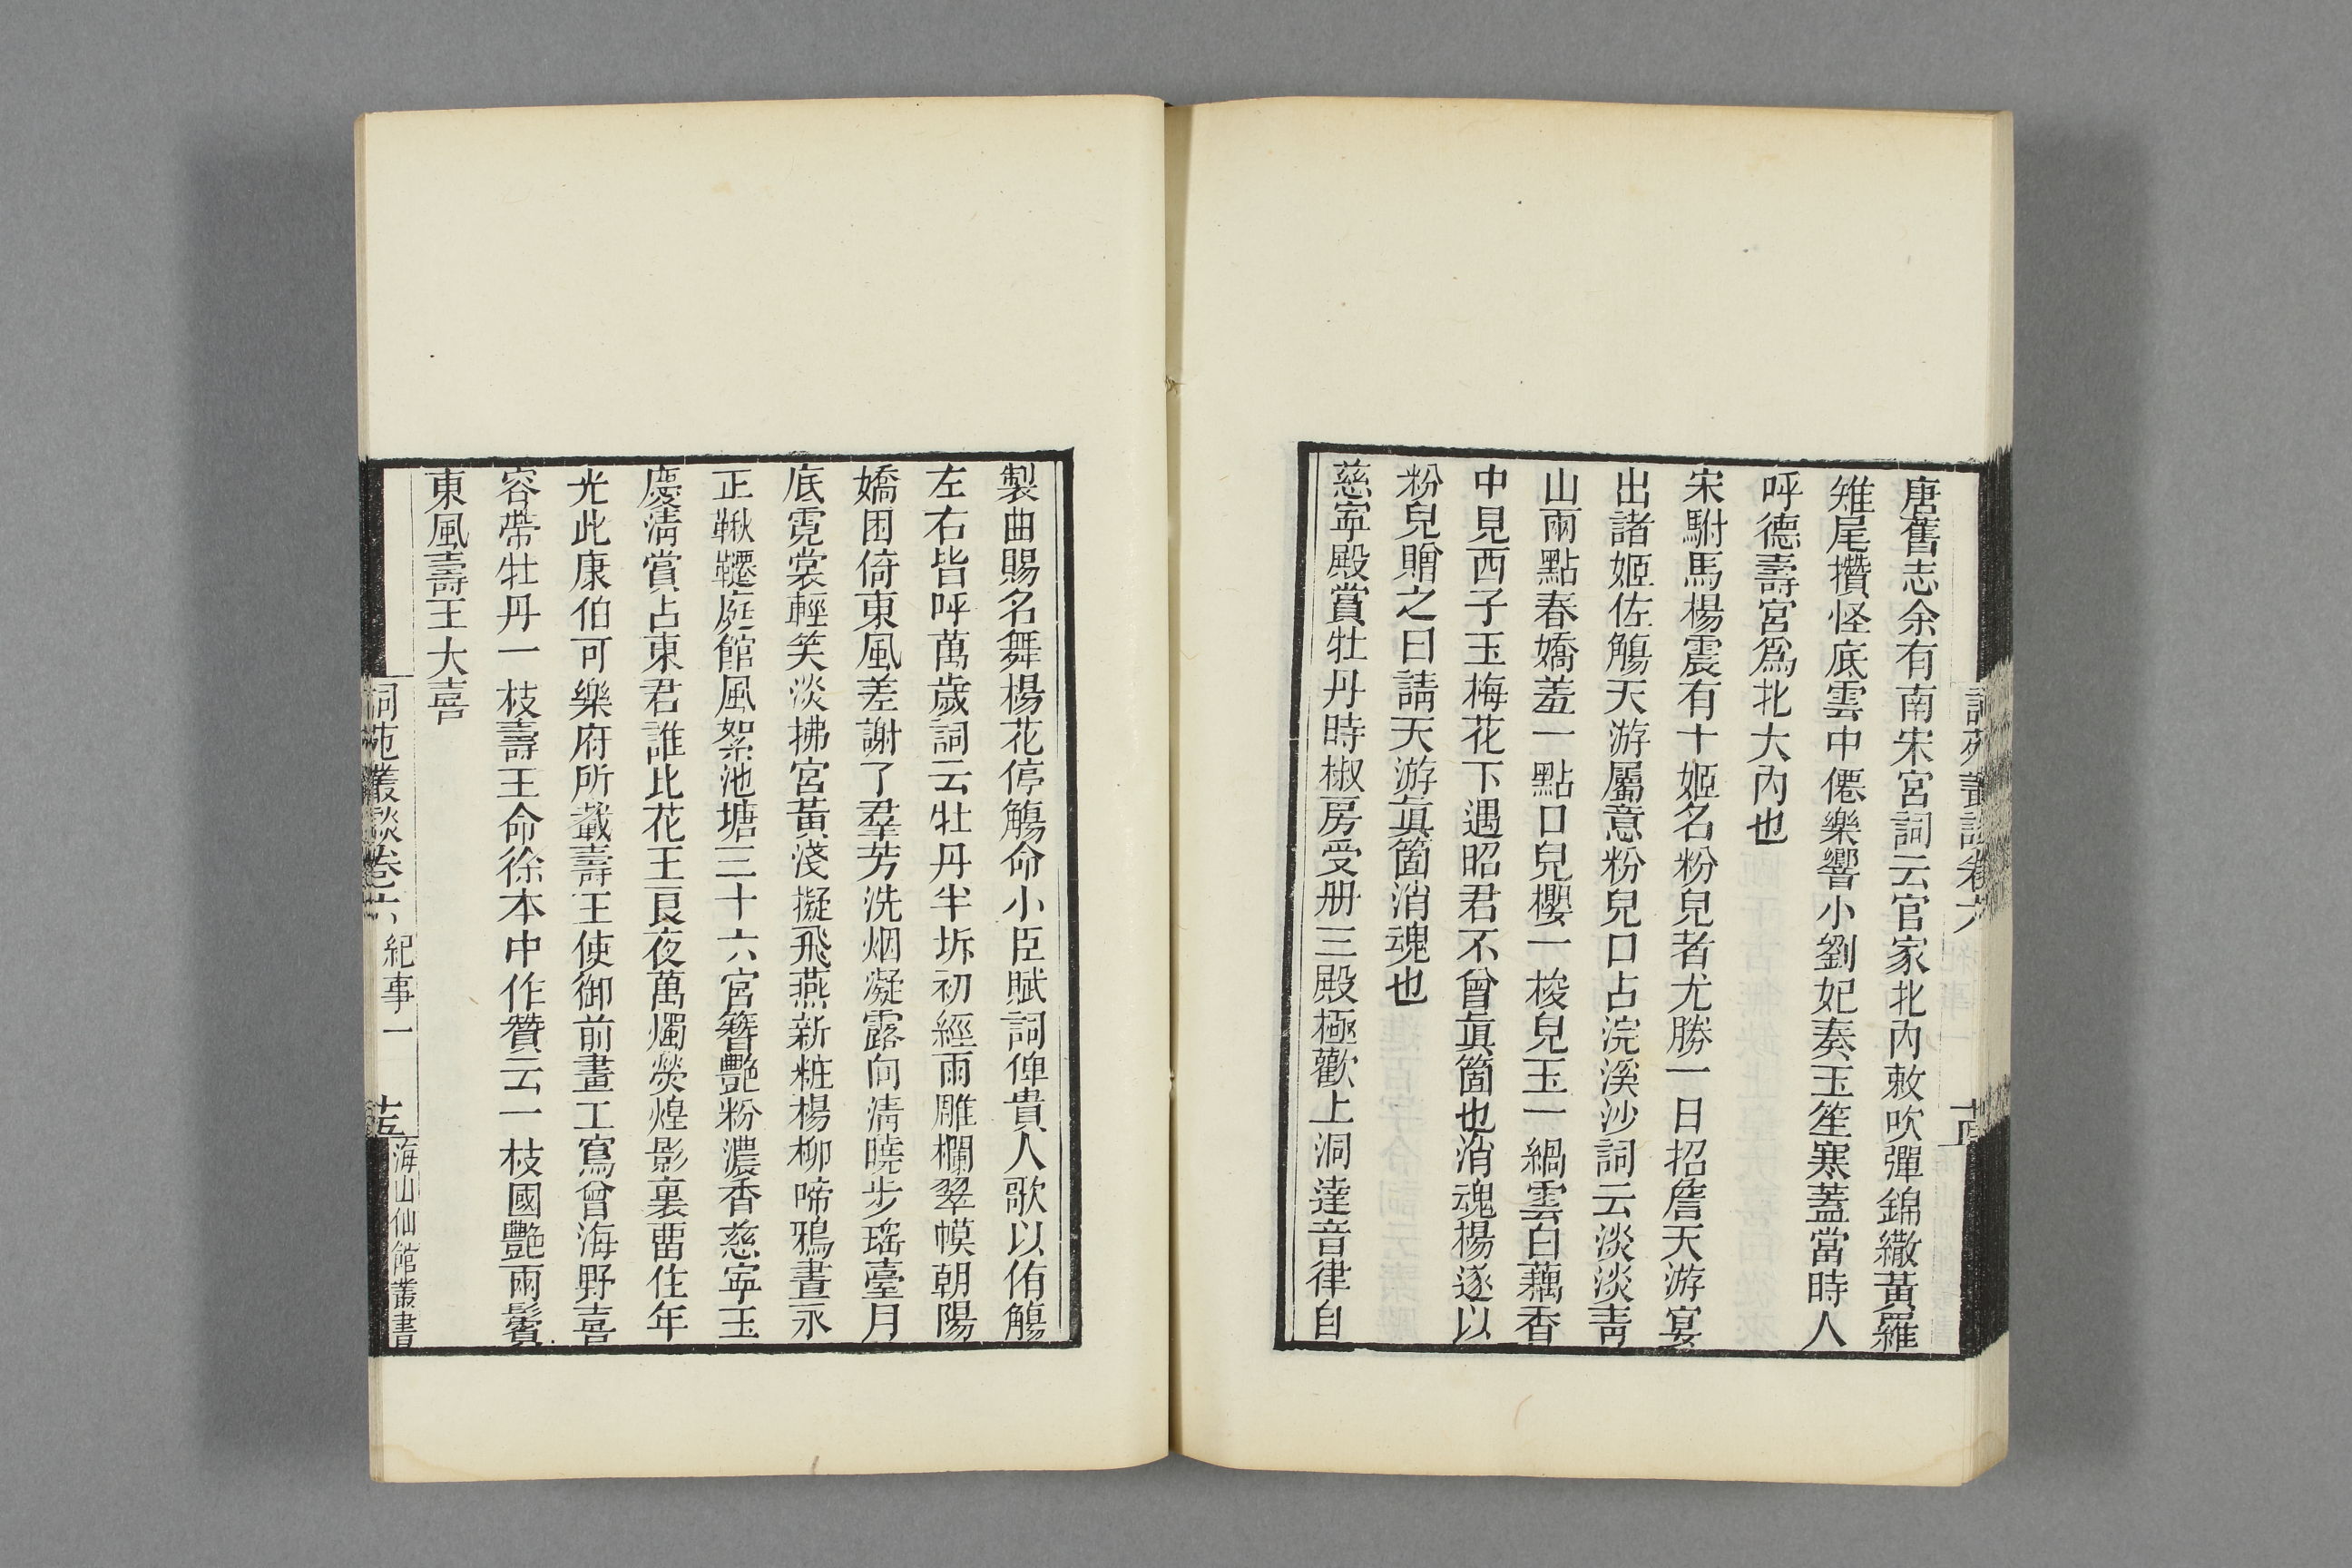 詞苑叢談卷六
唐舊志余有南宋宮詞云官家北內敕吹彈錦繖黃羅
雉尾攢怪底雲中僊樂響小劉妃奏玉笙寒蓋當時人
呼德壽宮爲北大內也
宋駙馬楊震有十姬名粉兒者尤勝一日招詹天游宴
出諸姬佐觴天游屬意粉兒口占浣溪沙詞云淡淡靑
山兩點春嬌羞一點口兒櫻一梭兒玉一緺雲白藕香
中見西子玉梅花下遇昭君不曾眞箇也消魂楊遂以
粉兒贈之曰請天游眞箇消魂也
慈寧殿賞牡丹時椒房受册三殿極歡上洞達音律自
製曲賜名舞楊花停觴命小臣賦詞俾貴人歌以侑觴
左右皆呼萬歲詞云牡丹半坼初經雨雕欄翠幙朝陽
嬌困倚東風羞謝了羣芳洗烟凝露向淸曉步瑤臺月
底霓裳輕笑淡拂宮黃淺擬飛燕新粧楊柳啼鴉晝永
正鞦韆庭館風絮池塘三十六宮簪艷粉濃香慈寧玉
慶淸賞占東君誰比花王艮夜萬燭熒煌影裏畱住年
光此康伯可樂府所載壽王使御前畫工寫曾海野喜
容帶牡丹一枝壽王命徐本中作贊云一枝國艷兩鬢
東風壽王大喜
詞苑叢談卷六 紀事一 十五 海山仙館叢書